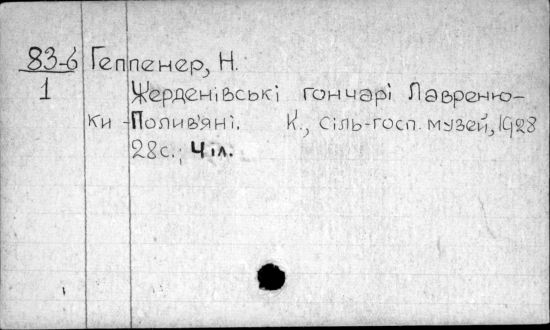 83-6 Геппенер, Н.
1 Жерденівські гончарі Лавреню-
ки - Полив'яні. К., сіль-госп. музей, 1928
28с.; 4іл.